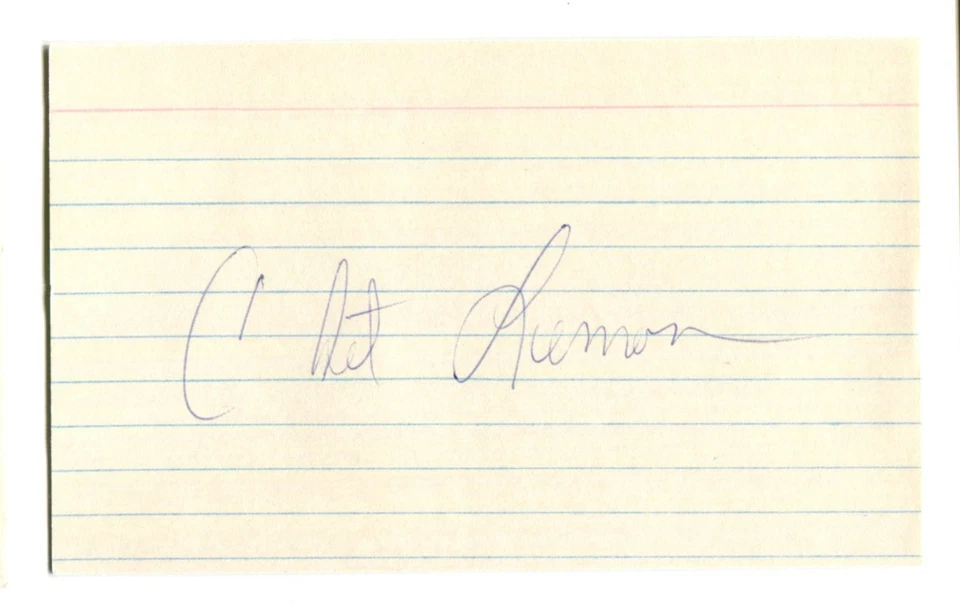 Chet Lemon